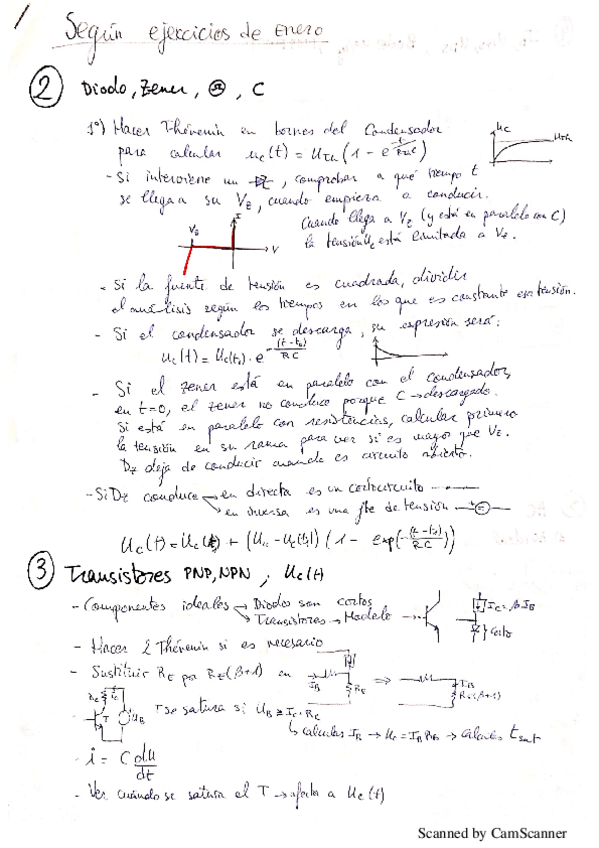 Según ejercicios de enero
② Diodo, Zener, Ⓡ, C
1º) Hacer Thévenin en bornes del Condensador
para calcular u_c(t) = U_Th (1 - e^(-t/(R_Th C)))
u_C
U_Th
t
- Si interviene un DZ, comprobar a qué tiempo
se llega a su V_Z, cuando empieza a conducir.
Cuando llega a V_Z (y está en paralelo con C)
la tensión u_c está limitada a V_Z.
V_Z
I
V
- Si la fuente de tensión es cuadrada, dividir
el análisis según los tiempos en los que es constante esa tensión.
- Si el condensador se descarga, su expresión será:
u_c(t) = u_c(t_0) · e^(-(t-t_0)/(RC))
- Si el zener está en paralelo con el condensador,
en t=0, el zener no conduce porque C → descargado.
Si está en paralelo con resistencias, calcular primero
la tensión en su rama para ver si es mayor que V_Z.
D_Z deja de conducir cuando es circuito abierto.
- Si D_Z conduce → en directa es un cortocircuito
→ en inversa es una fte de tensión
③ Transistores PNP, NPN, u_c(t)
- Componentes ideales → Diodos son cortos
→ Transistores → Modelo
I_C = β I_B
Corto
- Hacer 2 Thévenin si es necesario
- Sustituir R_E por R_E(β+1) en
I_B
R_E
I_B
R_E(β+1)
T
T se satura si
→ calculas I_B
→ calculas t_sat
- i = C du/dt
- Ver cuándo se satura el T → afecta a u_c(t)
Scanned by CamScanner